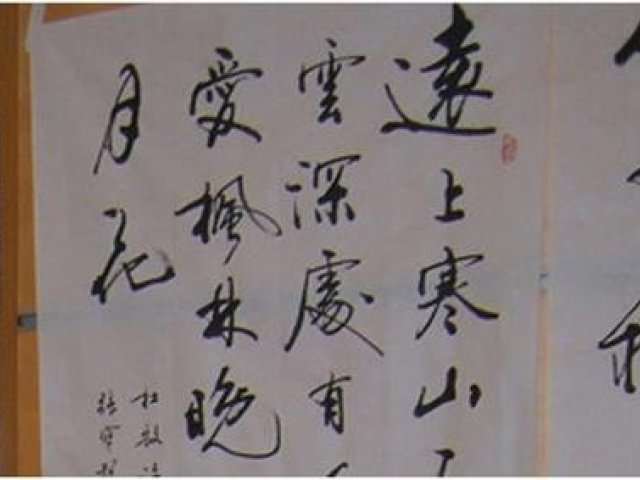 遠上寒山
雲深處有
愛楓林晚
月花
杜牧詩